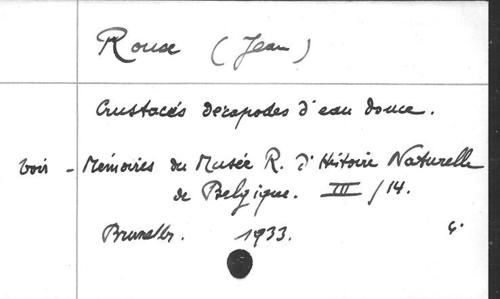 Rouse (Jean)
Crustacés Décapodes d'eau douce.
Voir - Mémoires du Musée R. d'Histoire Naturelle
de Belgique. III / 14.
Bruxelles. 1933.